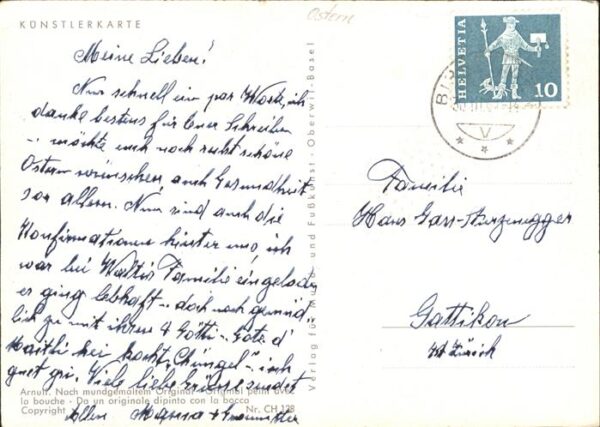 KÜNSTLERKARTE
Ostern
Meine Lieben!
Nur schnell ein par Worte, ich
danke bestens für Euer Schreiben
möchte euch noch recht schöne
Ostern wünschen auch Gesundheit
vor allem. Nun sind auch die
Konfirmationen hinter uns, ich
war bei Familie eingeladen
es ging lebhaft - doch noch gemüt
lich zu mit ihren 4 Götti - Gote d'
het kocht "Chüngel" - isch
guet gsi. Viele liebe Grüsse sendet
Allen Mama + Grossmutter
Arnulf. Nach mundgemaltem Original - Original peint avec
la bouche - Da un originale dipinto con la bocca
Copyright Nr. CH 128
Verlag für Mund- und Fußkunst - Oberwil-Basel
HELVETIA
10
Familie
Hans
Gattikon
Kt. Zürich